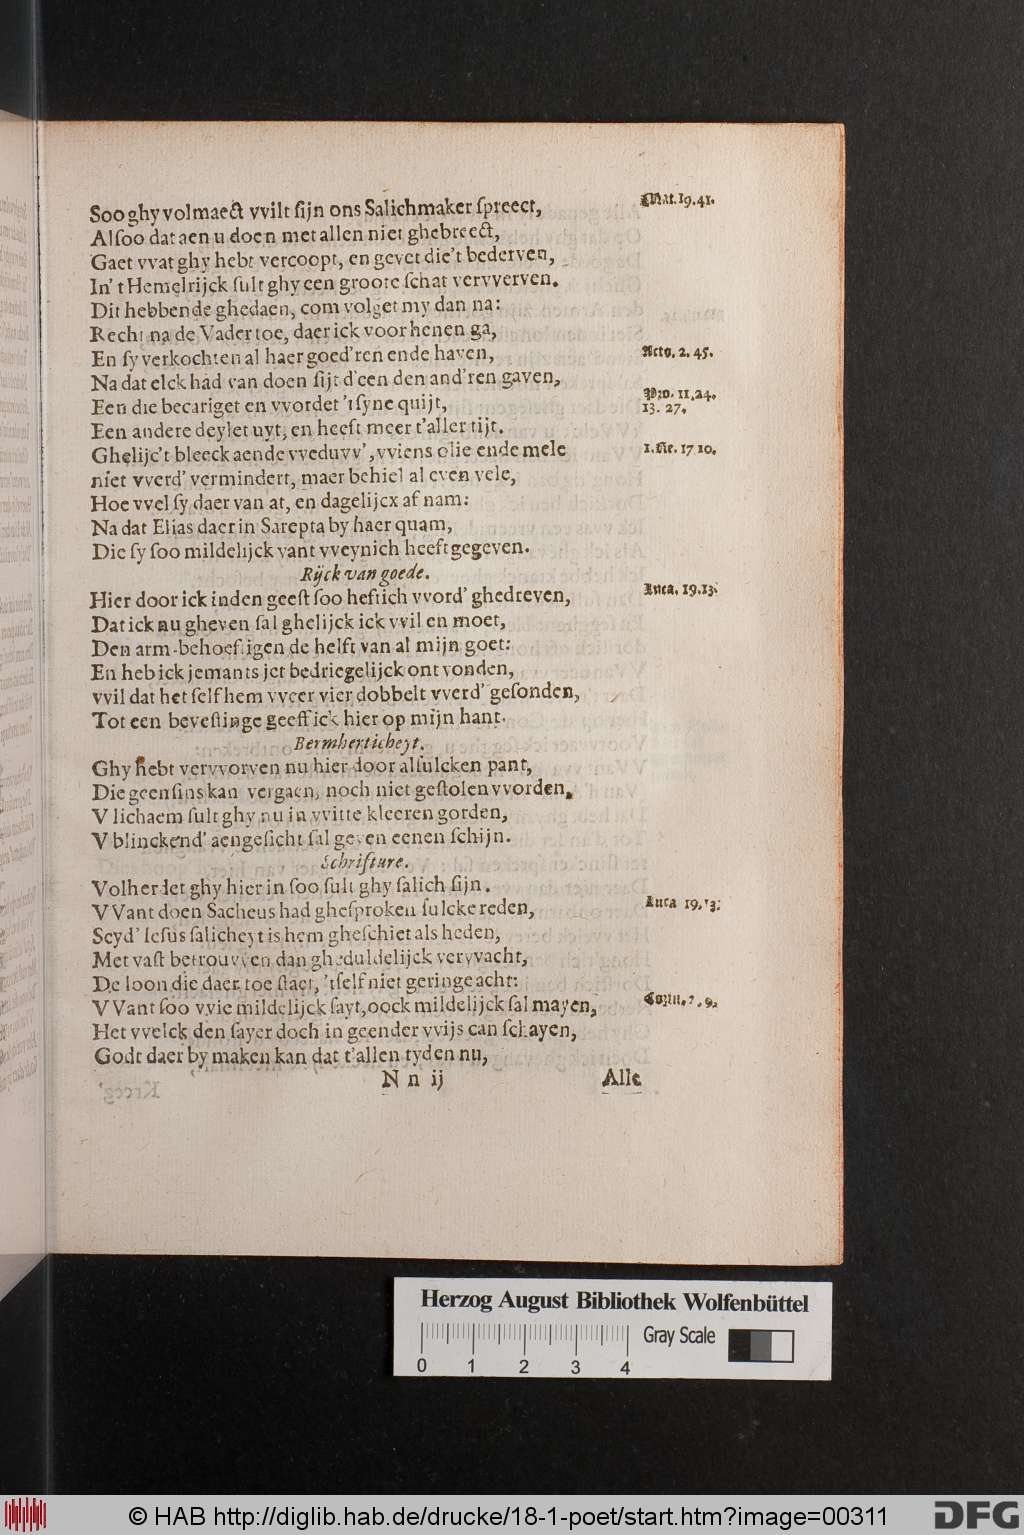 Soo ghy volmaect vvilt ſijn ons Salichmaker ſpreect, Mat. 19. 41.
Alſoo dat aen u doen met allen niet ghebreect,
Gaet vvat ghy hebt vercoopt, en gevet die't bederven,
In't Hemelrijck ſult ghy een groote ſchat vervverven.
Dit hebbende ghedaen, com volget my dan na:
Recht na de Vader toe, daer ick voor henen ga,
En ſy verkochten al haer goed'ren ende haven, Acto. 2. 45.
Na dat elck had van doen ſijt d'een den and'ren gaven,
Een die becariget en vvordet 't ſyne quijt, Pro. 11. 24.
13. 27.
Een andere deylet uyt, en heeft meer t'aller tijt.
Ghelijc't bleeck aende vveduvv', vviens olie ende mele 1. Re. 17 10.
niet vverd' vermindert, maer behiel al even vele,
Hoe vvel ſy daer van at, en dagelijcx af nam:
Na dat Elias daer in Sarepta by haer quam,
Die ſy ſoo mildelijck vant vveynich heeft gegeven.
Rijck van goede.
Hier door ick inden geeſt ſoo heftich vvord' ghedreven, Luca. 19. 13.
Dat ick nu gheven ſal ghelijck ick vvil en moet,
Den arm-behoeftigen de helft van al mijn goet:
En heb ick jemants jet bedriegelijck ontvonden,
vvil dat het ſelf hem vveer vier dobbelt vverd' geſonden,
Tot een beveſtinge geeff ick hier op mijn hant.
Bermherticheyt.
Ghy hebt vervvorven nu hier door alſulcken pant,
Die geenſins kan vergaen, noch niet geſtolen vvorden,
V lichaem ſult ghy nu in vvitte kleeren gorden,
V blinckend' aengeſicht ſal geven eenen ſchijn.
Schrifture.
Volherdet ghy hier in ſoo ſult ghy ſalich ſijn.
VVant doen Sacheus had gheſproken ſulcke reden, Luca 19. 13.
Seyd' Ieſus ſalicheyt is hem gheſchiet als heden,
Met vaſt betrouvven dan gheduldelijck vervvacht,
De loon die daer toe ſtaet, 'tſelf niet geringe acht:
VVant ſoo vvie mildelijck ſayt, oock mildelijck ſal mayen, 2. 9.
Het vvelck den ſayer doch in geender vvijs can ſchayen,
Godt daer by maken kan dat t'allen tyden nu,
N n ij Alle
Herzog August Bibliothek Wolfenbüttel
Gray Scale
0 1 2 3 4
© HAB http://diglib.hab.de/drucke/18-1-poet/start.htm?image=00311
DFG